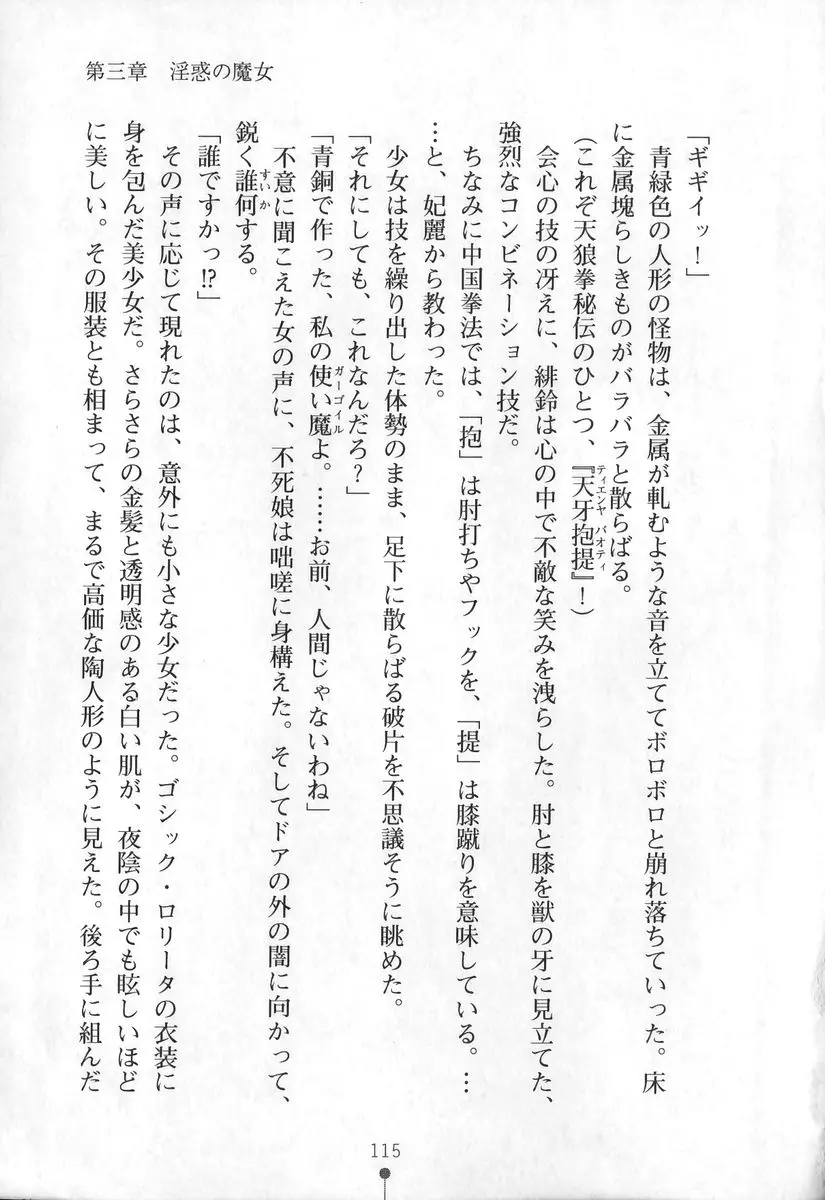 第三章　淫惑の魔女
「ギギイッ！」
　青緑色の人形の怪物は、金属が軋むような音を立ててボロボロと崩れ落ちていった。床
に金属塊らしきものがバラバラと散らばる。
（これぞ天狼拳秘伝のひとつ、『天牙抱提』！）
ティエンヤ　パオティ
　会心の技の冴えに、緋鈴は心の中で不敵な笑みを洩らした。肘と膝を獣の牙に見立てた、
強烈なコンビネーション技だ。
　ちなみに中国拳法では、「抱」は肘打ちやフックを、「提」は膝蹴りを意味している。…
…と、妃麗から教わった。
　少女は技を繰り出した体勢のまま、足下に散らばる破片を不思議そうに眺めた。
「それにしても、これなんだろ？」
「青銅で作った、私の使い魔よ。……お前、人間じゃないわね」
ガーゴイル
　不意に聞こえた女の声に、不死娘は咄嗟に身構えた。そしてドアの外の闇に向かって、
鋭く誰何する。
すいか
「誰ですかっ!?」
　その声に応じて現れたのは、意外にも小さな少女だった。ゴシック・ロリータの衣装に
身を包んだ美少女だ。さらさらの金髪と透明感のある白い肌が、夜陰の中でも眩しいほど
に美しい。その服装とも相まって、まるで高価な陶人形のように見えた。後ろ手に組んだ
115